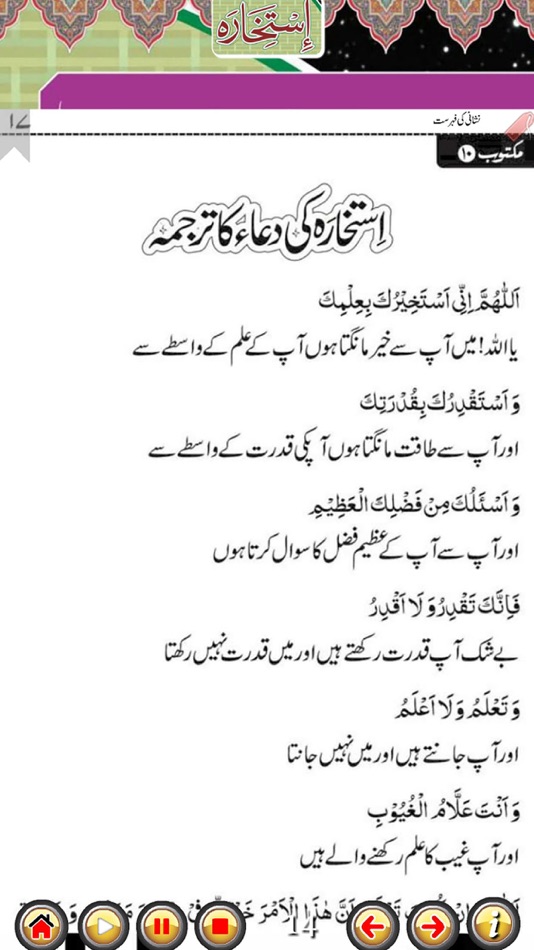 اِسْتِخَارَہ
نشانی کی فہرست
۱۷
مکتوب ۱۰
اِستخارَہ کی دعاء کا ترجمہ
اَللّٰهُمَّ اِنِّیْ اَسْتَخِیْرُكَ بِعِلْمِكَ
یا اللہ! میں آپ سے خیر مانگتا ہوں آپ کے علم کے واسطے سے
وَ اَسْتَقْدِرُكَ بِقُدْرَتِكَ
اور آپ سے طاقت مانگتا ہوں آپکی قدرت کے واسطے سے
وَ اَسْئَلُكَ مِنْ فَضْلِكَ الْعَظِیْمِ
اور آپ سے آپ کے عظیم فضل کا سوال کرتا ہوں
فَاِنَّكَ تَقْدِرُ وَ لَا اَقْدِرُ
بے شک آپ قدرت رکھتے ہیں اور میں قدرت نہیں رکھتا
وَ تَعْلَمُ وَ لَا اَعْلَمُ
اور آپ جانتے ہیں اور میں نہیں جانتا
وَ اَنْتَ عَلَّامُ الْغُیُوْبِ
اور آپ غیب کا علم رکھنے والے ہیں
هٰذَا الْاَمْرَ
14
i